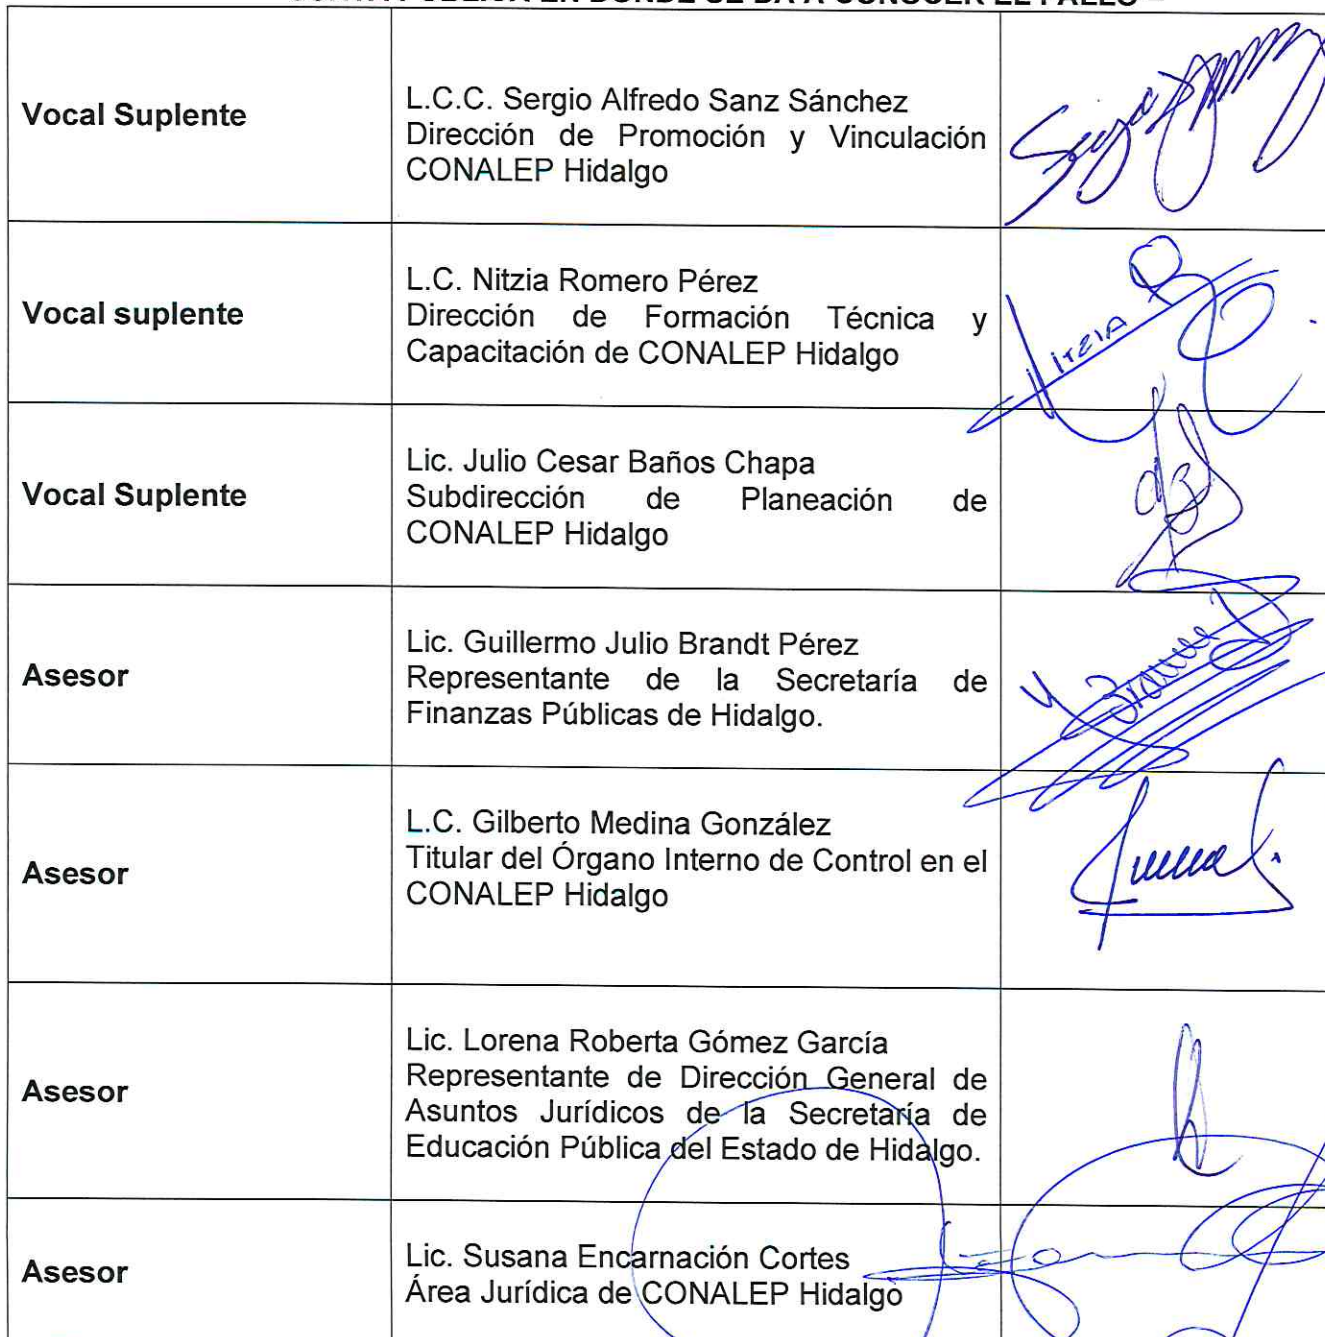 EN DONDE SE DA A CONOCER EL FALLO
Vocal Suplente
L.C.C. Sergio Alfredo Sanz Sánchez
Dirección de Promoción y Vinculación
CONALEP Hidalgo
Vocal suplente
L.C. Nitzia Romero Pérez
Dirección de Formación Técnica y
Capacitación de CONALEP Hidalgo
Nitzia
Vocal Suplente
Lic. Julio Cesar Baños Chapa
Subdirección de Planeación de
CONALEP Hidalgo
Asesor
Lic. Guillermo Julio Brandt Pérez
Representante de la Secretaría de
Finanzas Públicas de Hidalgo.
Asesor
L.C. Gilberto Medina González
Titular del Órgano Interno de Control en el
CONALEP Hidalgo
Asesor
Lic. Lorena Roberta Gómez García
Representante de Dirección General de
Asuntos Jurídicos de la Secretaría de
Educación Pública del Estado de Hidalgo.
Asesor
Lic. Susana Encarnación Cortes
Área Jurídica de CONALEP Hidalgo